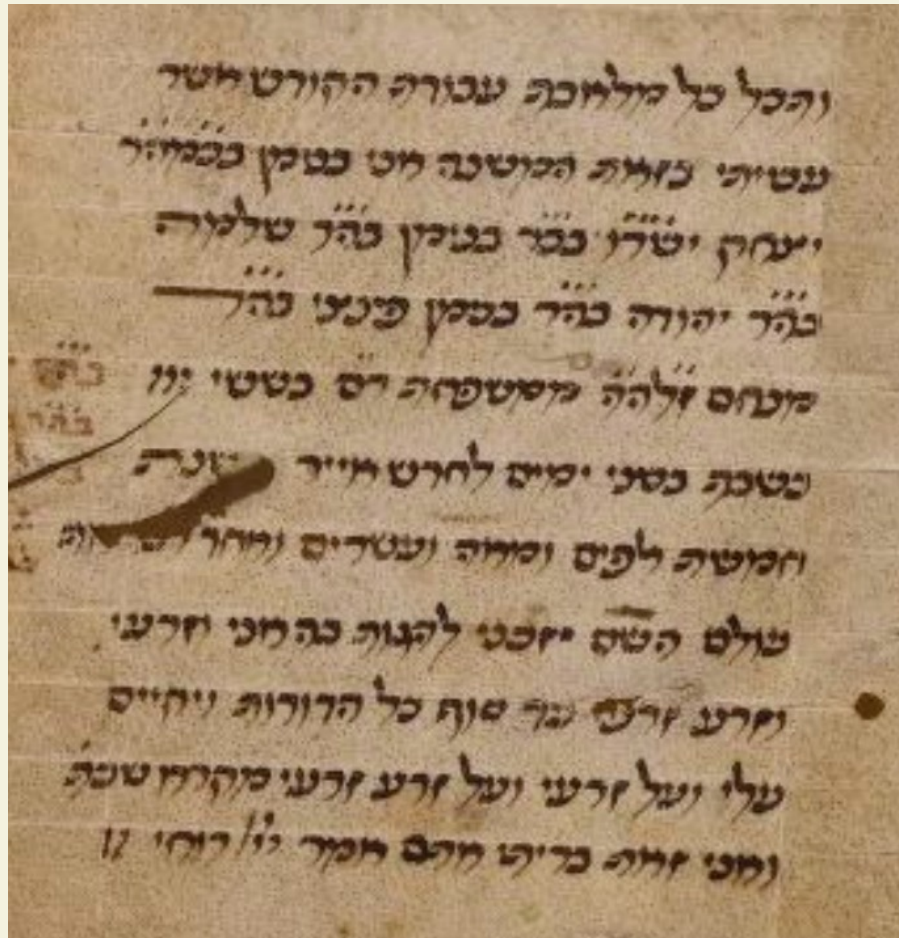 ותכל כל מלאכת עבודת הקודש אשר
עשיתי בזאת המשנה אני בנימן בכמ̈ה̈ר̈
יצחק ישר̈ו̈ בכ̈ר בנימן בה̈ר̈ שלמה
בה̈ר̈ יהודה בה̈ר̈ בנימן בה̈ר̈
מנחם ז̈ל̈ה̈ה̈ ממשפחת בששי
בשבת בשני ימים לחדש אייר שנת
חמשת אלפים ומאה ועשרים ואחד
עולם השם יזכני להגות בה אני וזרעי
וזרע זרעי עד סוף כל הדורות ויקיים
עלי ועל זרעי ועל זרע זרעי מקרא שכת׳
ואני זאת בריתי אתם אמר יי׳ רוחי וג׳